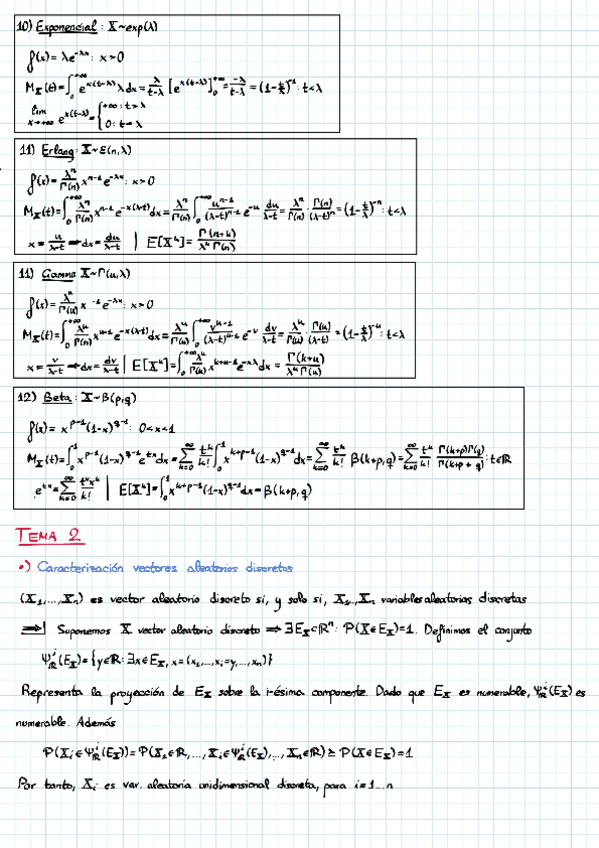 10) Exponencial: X~exp(λ)
f(x) = λe^{-λx}: x>0
M_X(t) = ∫_0^{+∞} e^{x(t-λ)} λ dx = λ/(t-λ) [e^{x(t-λ)}]_0^{+∞} = -λ/(t-λ) = (1-t/λ)^{-1}: t<λ
lim_{x→+∞} e^{x(t-λ)} = { +∞: t>λ
0: t<λ
11) Erlang: X~ε(n,λ)
f(x) = λ^n/Γ(n) x^{n-1} e^{-λx}: x>0
M_X(t) = ∫_0^{+∞} λ^n/Γ(n) x^{n-1} e^{-x(λ-t)} dx = λ^n/Γ(n) ∫_0^{+∞} u^{n-1}/(λ-t)^{n-1} e^{-u} du/(λ-t) = λ^n/Γ(n) · Γ(n)/(λ-t)^n = (1-t/λ)^{-n}: t<λ
x = u/(λ-t) ⟹ dx = du/(λ-t) | E[X^k] = Γ(n+k)/(λ^k Γ(n))
11) Gamma X~Γ(u,λ)
f(x) = λ^u/Γ(u) x^{-1} e^{-λx}: x>0
M_X(t) = ∫_0^{+∞} λ^u/Γ(u) x^{u-1} e^{-x(λ-t)} dx = λ^u/Γ(u) ∫_0^{+∞} v^{u-1}/(λ-t)^{u-1} e^{-v} dv/(λ-t) = λ^u/Γ(u) · Γ(u)/(λ-t) = (1-t/λ)^{-u}: t<λ
x = v/(λ-t) ⟹ dx = dv/(λ-t) | E[X^k] = ∫_0^{+∞} λ^u/Γ(u) x^{k+u-1} e^{-xλ} dx = Γ(k+u)/(λ^k Γ(u))
12) Beta: X~β(p,q)
f(x) = x^{p-1}(1-x)^{q-1}: 0<x<1
M_X(t) = ∫_0^1 x^{p-1}(1-x)^{q-1} e^{tx} dx = ∑_{k=0}^∞ t^k/k! ∫_0^1 x^{k+p-1}(1-x)^{q-1} dx = ∑_{k=0}^∞ t^k/k! β(k+p,q) = ∑_{k=0}^∞ t^k/k! Γ(k+p)Γ(q)/Γ(k+p+q): t∈ℝ
e^{tx} = ∑_{k=0}^∞ t^k x^k/k! | E[X^k] = ∫_0^1 x^{k+p-1}(1-x)^{q-1} dx = β(k+p,q)
TEMA 2
•) Caracterización vectores aleatorios discretos
(X_1,...,X_n) es vector aleatorio discreto si, y solo si, X_1...X_n variables aleatorias discretas
⟹| Suponemos X vector aleatorio discreto ⟹ ∃E_X⊂ℝ^n: P(X∈E_X)=1. Definimos el conjunto
Ψ_ℝ^i(E_X) = {y∈ℝ: ∃x∈E_X, x=(x_1,...,x_i=y,...,x_n)}
Representa la proyección de E_X sobre la i-ésima componente. Dado que E_X es numerable, Ψ_ℝ^i(E_X) es
numerable. Además
P(X_i∈Ψ_ℝ^i(E_X)) = P(X_1∈ℝ,..., X_i∈Ψ_ℝ^i(E_X),..., X_n∈ℝ) ≥ P(X∈E_X)=1
Por tanto, X_i es var. aleatoria unidimensional discreta, para i=1...n